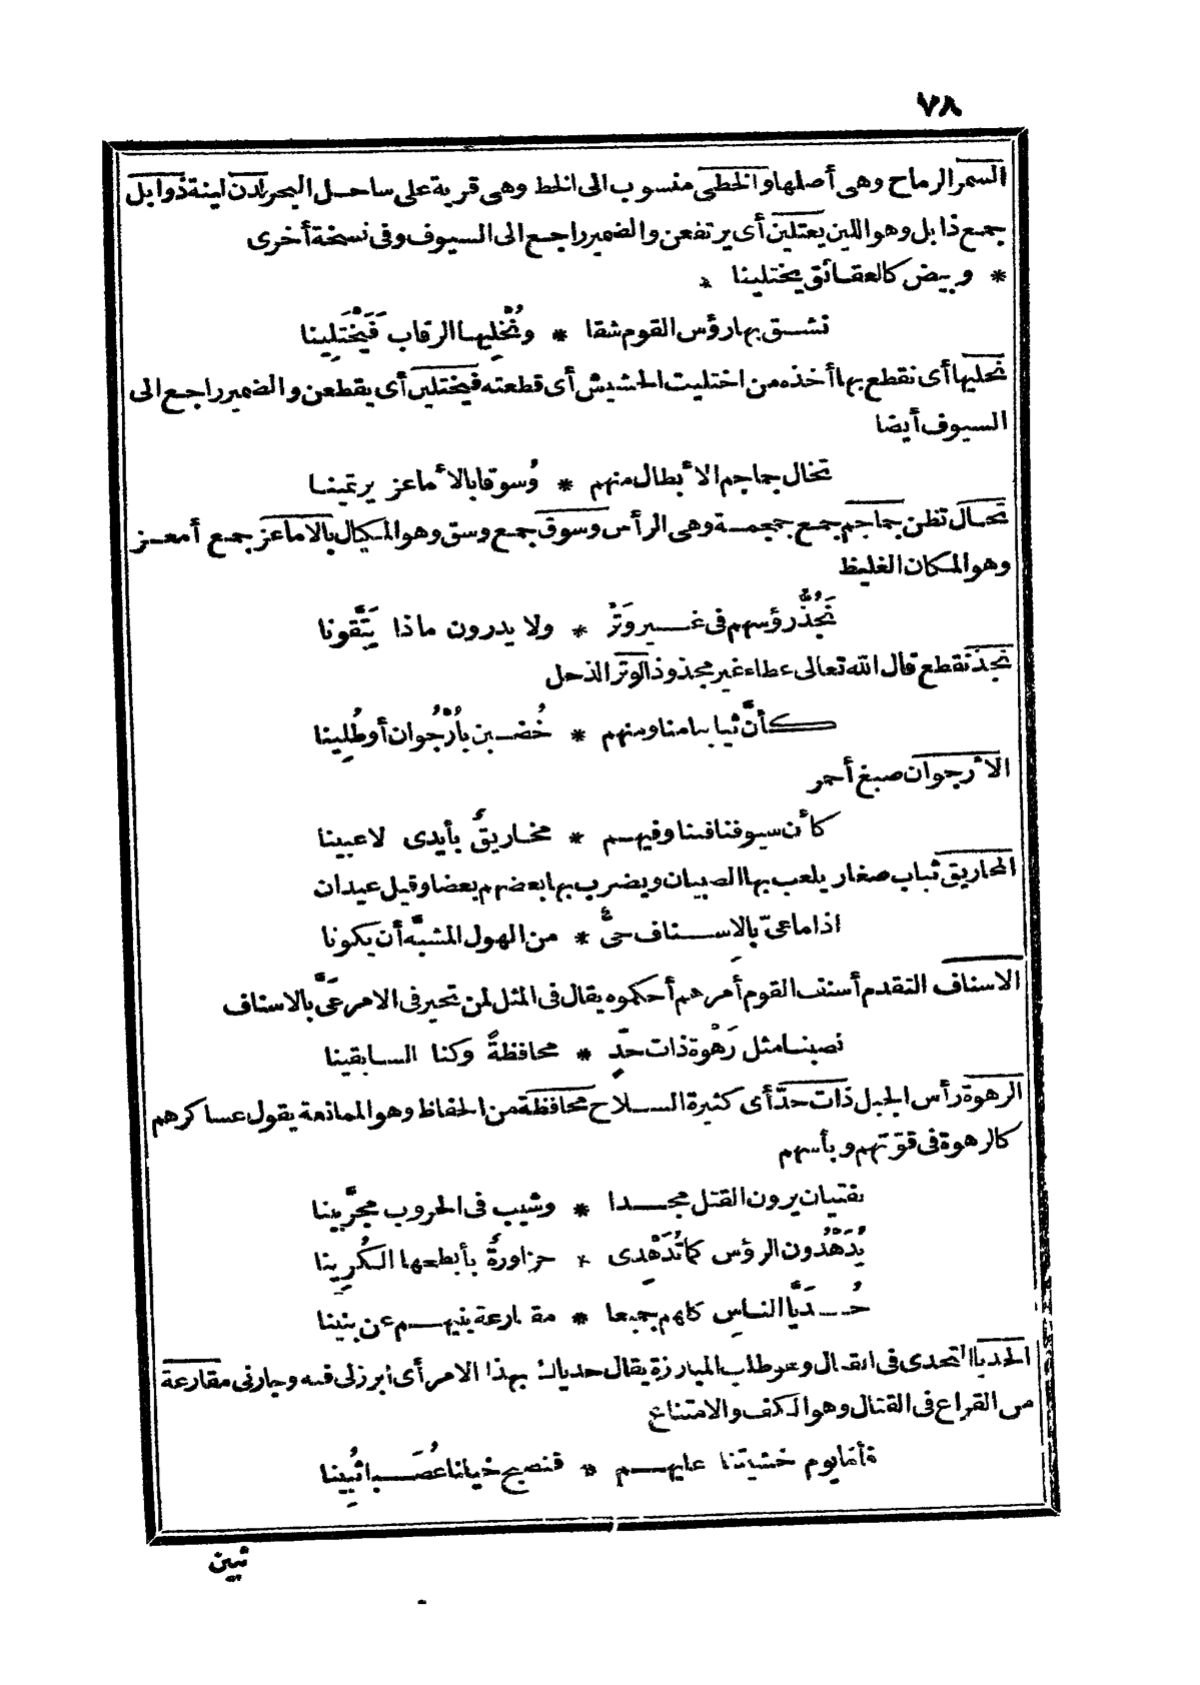 ٧٨
السمر الرماح وهى أصلها والخطى منسوب الى الخط وهى قرية على ساحل البحر لدن لينة ذوابل
جمع ذابل وهو اللين يعتلين أى يرتفعن والضمير راجع الى السيوف وفى نسخة أخرى
* وبيض كالعقائق يختلينا *
نشق بها رؤس القوم شقا * ونُخْلِيها الرقاب فَيَخْتَلِينا
نخليها أى نقطع بها أخذه من اختليت الحشيش أى قطعته فيختلين أى يقطعن والضمير راجع الى
السيوف أيضا
تخال جماجم الأبطال منهم * وُسوقا بالأماعز يرتمينا
تخال تظن جماجم جمع جمجمة وهى الرأس وسوق جمع وسق وهو المكيال بالاماعز جمع أمعز
وهو المكان الغليظ
نَجُذُّ رؤسهم فى غير وَتْر * ولا يدرون ماذا يَتَّقونا
نجذ نقطع قال الله تعالى عطاء غير مجذوذ الوتر الذحل
كأنَّ ثيابنا منا ومنهم * خُضبن بأُرْجُوان أو طُلِينا
الأرجوان صبغ أحمر
كأن سيوفنا فينا وفيهم * مخاريقُ بأيدى لاعبينا
المخاريق ثياب صغار يلعب بها الصبيان ويضرب بها بعضهم بعضا وقيل عيدان
اذا ماعىّ بالاسناف حىٌّ * من الهول المشبَّه أن يكونا
الاسناف التقدم أسنف القوم أمرهم أحكموه يقال فى المثل لمن تحير فى الامر عَىَّ بالاسناف
نصبنا مثل رَهْوة ذات حدّ * محافظةً وكنا السابقينا
الرهوة رأس الجبل ذات حدّ أى كثيرة السلاح محافظة من الحفاظ وهو الممانعة يقول عساكرهم
كالرهوة فى قوّتهم وبأسهم
بفتيان يرون القتل مجدا * وشيب فى الحروب مجرَّبينا
يُدَهْدُون الرؤس كما تُدَهْدِى * حزاورةٌ بأبطحها الكُرِينا
حُدَيَّا الناسِ كلهم جميعا * مقارعة بنيهم عن بنينا
الحديا التحدى فى القتال وهو طلب المبارزة يقال حدياك بهذا الامر أى ابرز لى فيه وجارنى مقارعة
من القراع فى القتال وهو الكف والامتناع
فأمّا يوم خشيتنا عليهم * فنصبح خيلنا عُصَبا ثُبِينا
ثبين